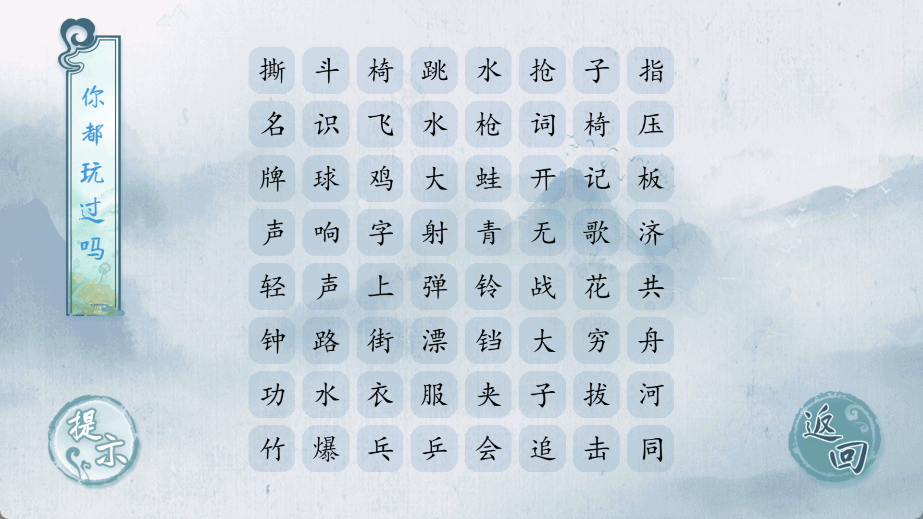 你都玩过吗
撕斗椅跳水抢子指
名识飞水枪词椅压
牌球鸡大蛙开记板
声响字射青无歌济
轻声上弹铃战花共
钟路街漂铛大穷舟
功水衣服夹子拔河
竹爆乓乒会追击同
提示
返回